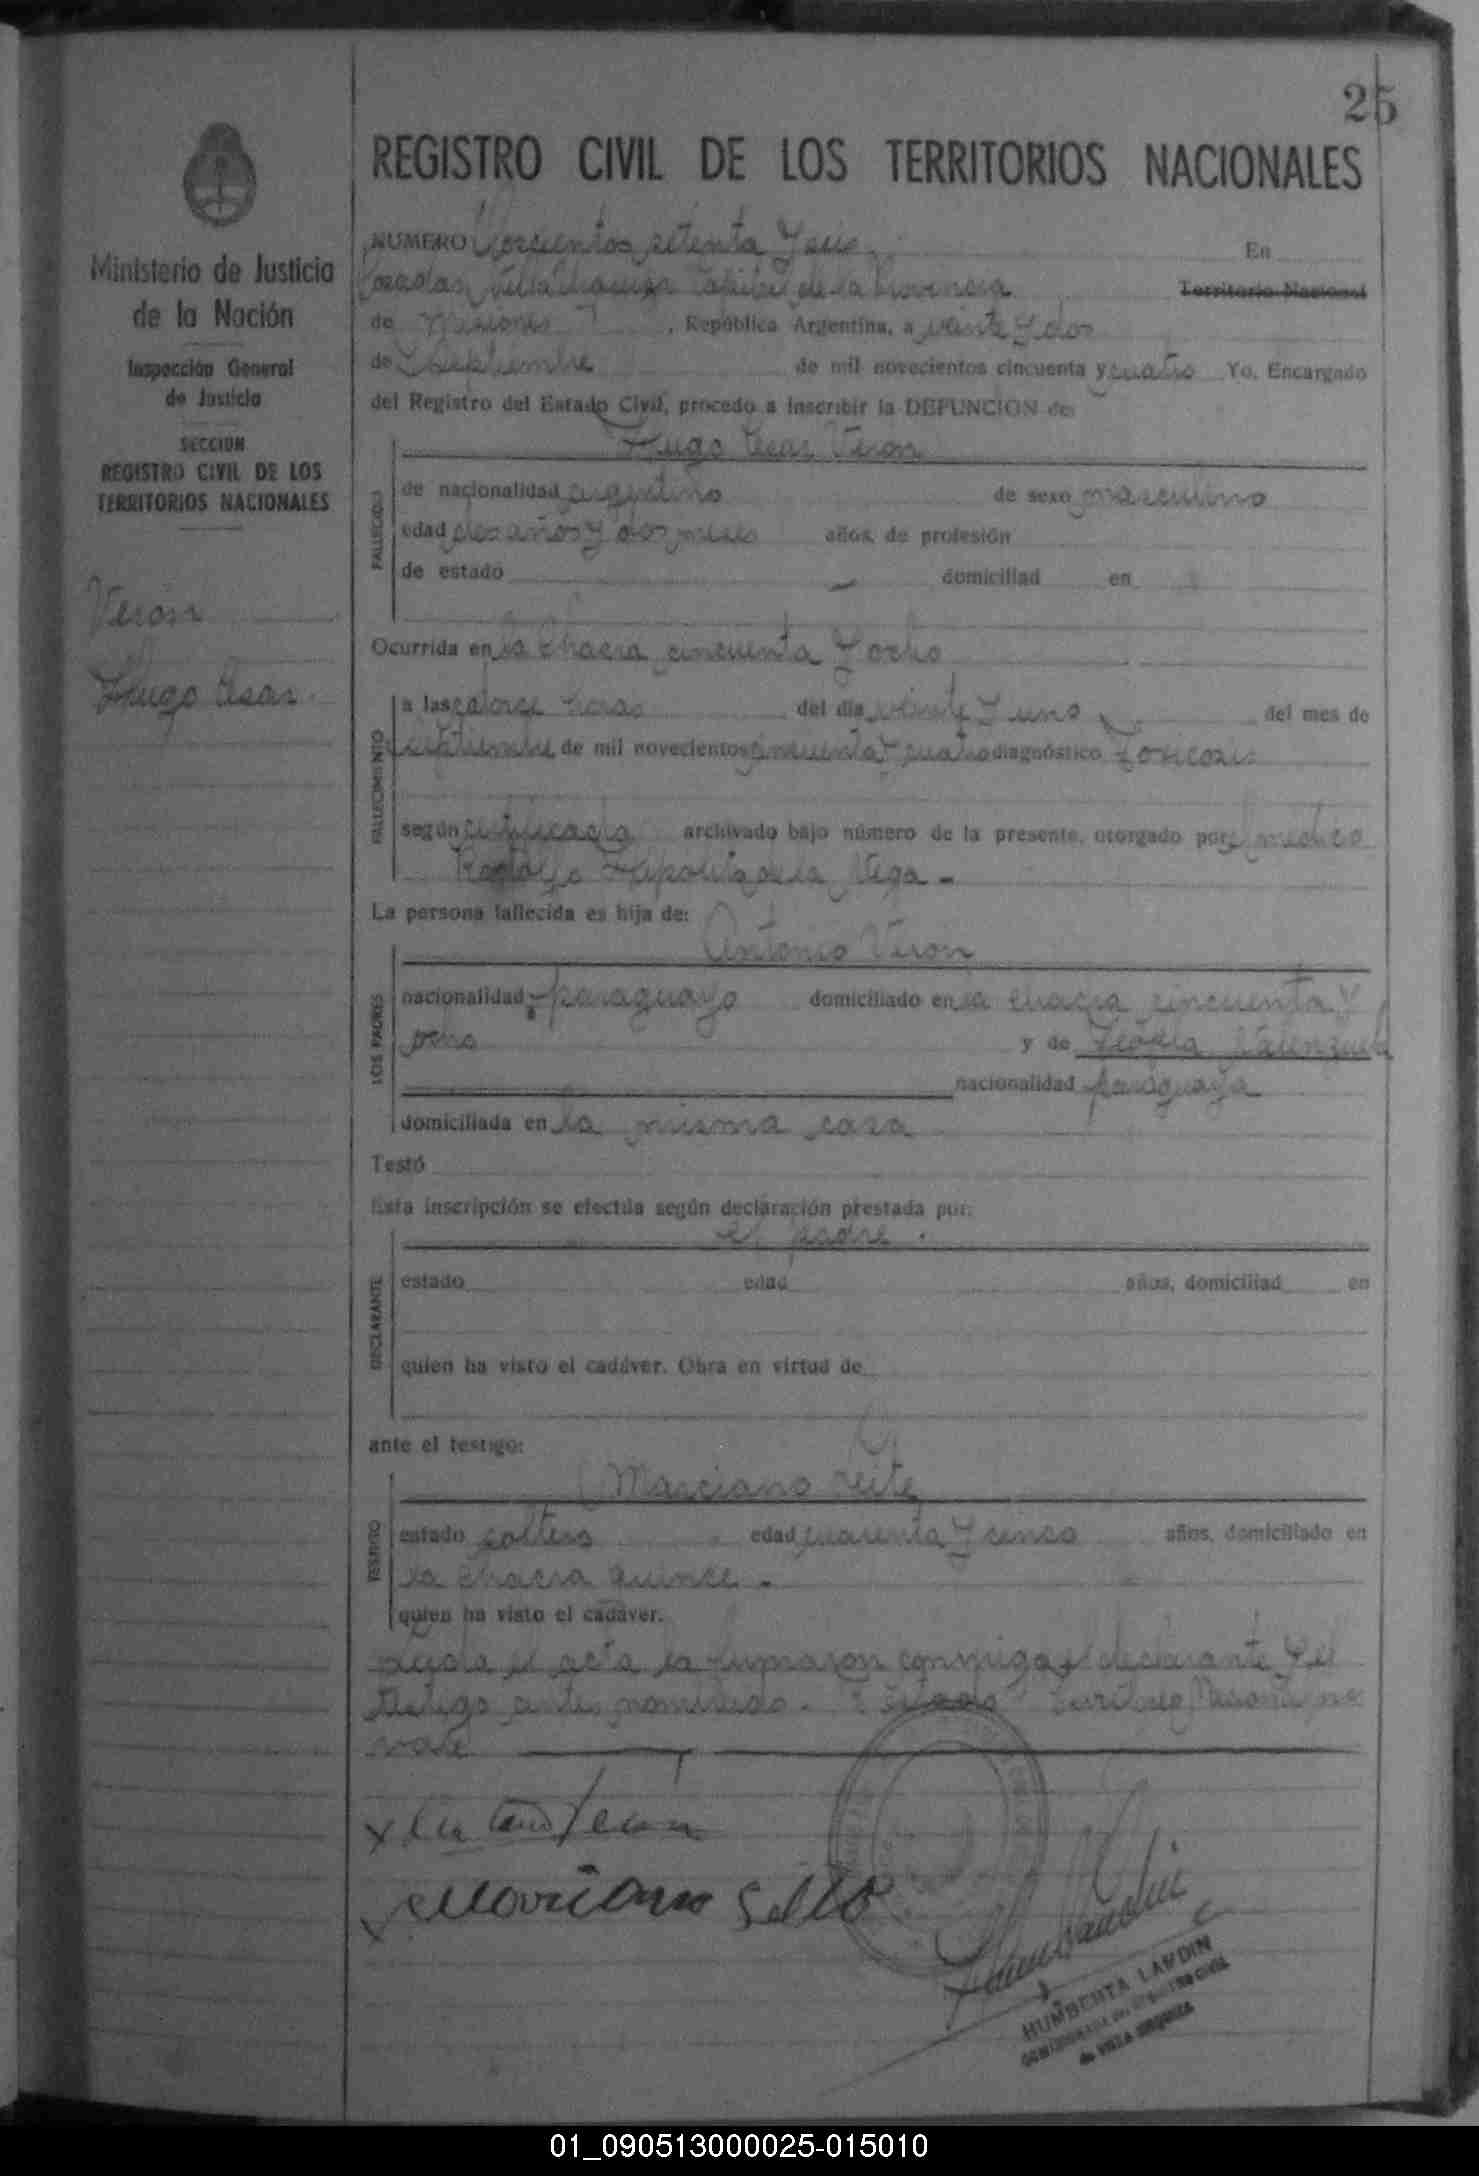 25
REGISTRO CIVIL DE LOS TERRITORIOS NACIONALES
Ministerio de Justicia
de la Nación
Inspección General
de Justicia
SECCION
REGISTRO CIVIL DE LOS
TERRITORIOS NACIONALES
Verón
Hugo Cesar
NUMERO setenta y seis En
Posadas, Villa Capital de la Provincia Territorio Nacional
de Misiones, República Argentina, a veinte y dos
de Septiembre de mil novecientos cincuenta y cuatro Yo, Encargado
del Registro del Estado Civil, procedo a inscribir la DEFUNCION de:
Hugo Cesar Veron
FALLECIDO
de nacionalidad argentino de sexo masculino
edad dos años y dos meses años, de profesión
de estado domiciliad en
Ocurrida en la chacra cincuenta y ocho
FALLECIMIENTO
a las catorce horas del día veinte y uno del mes de
septiembre de mil novecientos cincuenta y cuatro diagnóstico Toxicosis
según certificado archivado bajo número de la presente, otorgado por el médico
Rodolfo de la Vega -
La persona fallecida es hija de:
LOS PADRES
Antonio Veron
nacionalidad paraguayo domiciliado en la chacra cincuenta y
ocho y de Teofila Valenzuela
nacionalidad paraguaya
domiciliada en la misma casa
Testó
Esta inscripción se efectúa según declaración prestada por:
el padre.
DECLARANTE
estado edad años, domiciliad en
quien ha visto el cadáver. Obra en virtud de
ante el testigo:
Marciano
TESTIGO
estado soltero edad cuarenta y cinco años, domiciliado en
la chacra quince.
quien ha visto el cadáver.
Leida el acta la firmaron conmigo el declarante y el
testigo antes nombrado. Testado Territorio Nacional no
vale
HUMBERTA LANDIN
ENCARGADA DEL REGISTRO CIVIL
de VILLA URQUIZA
01_090513000025-015010